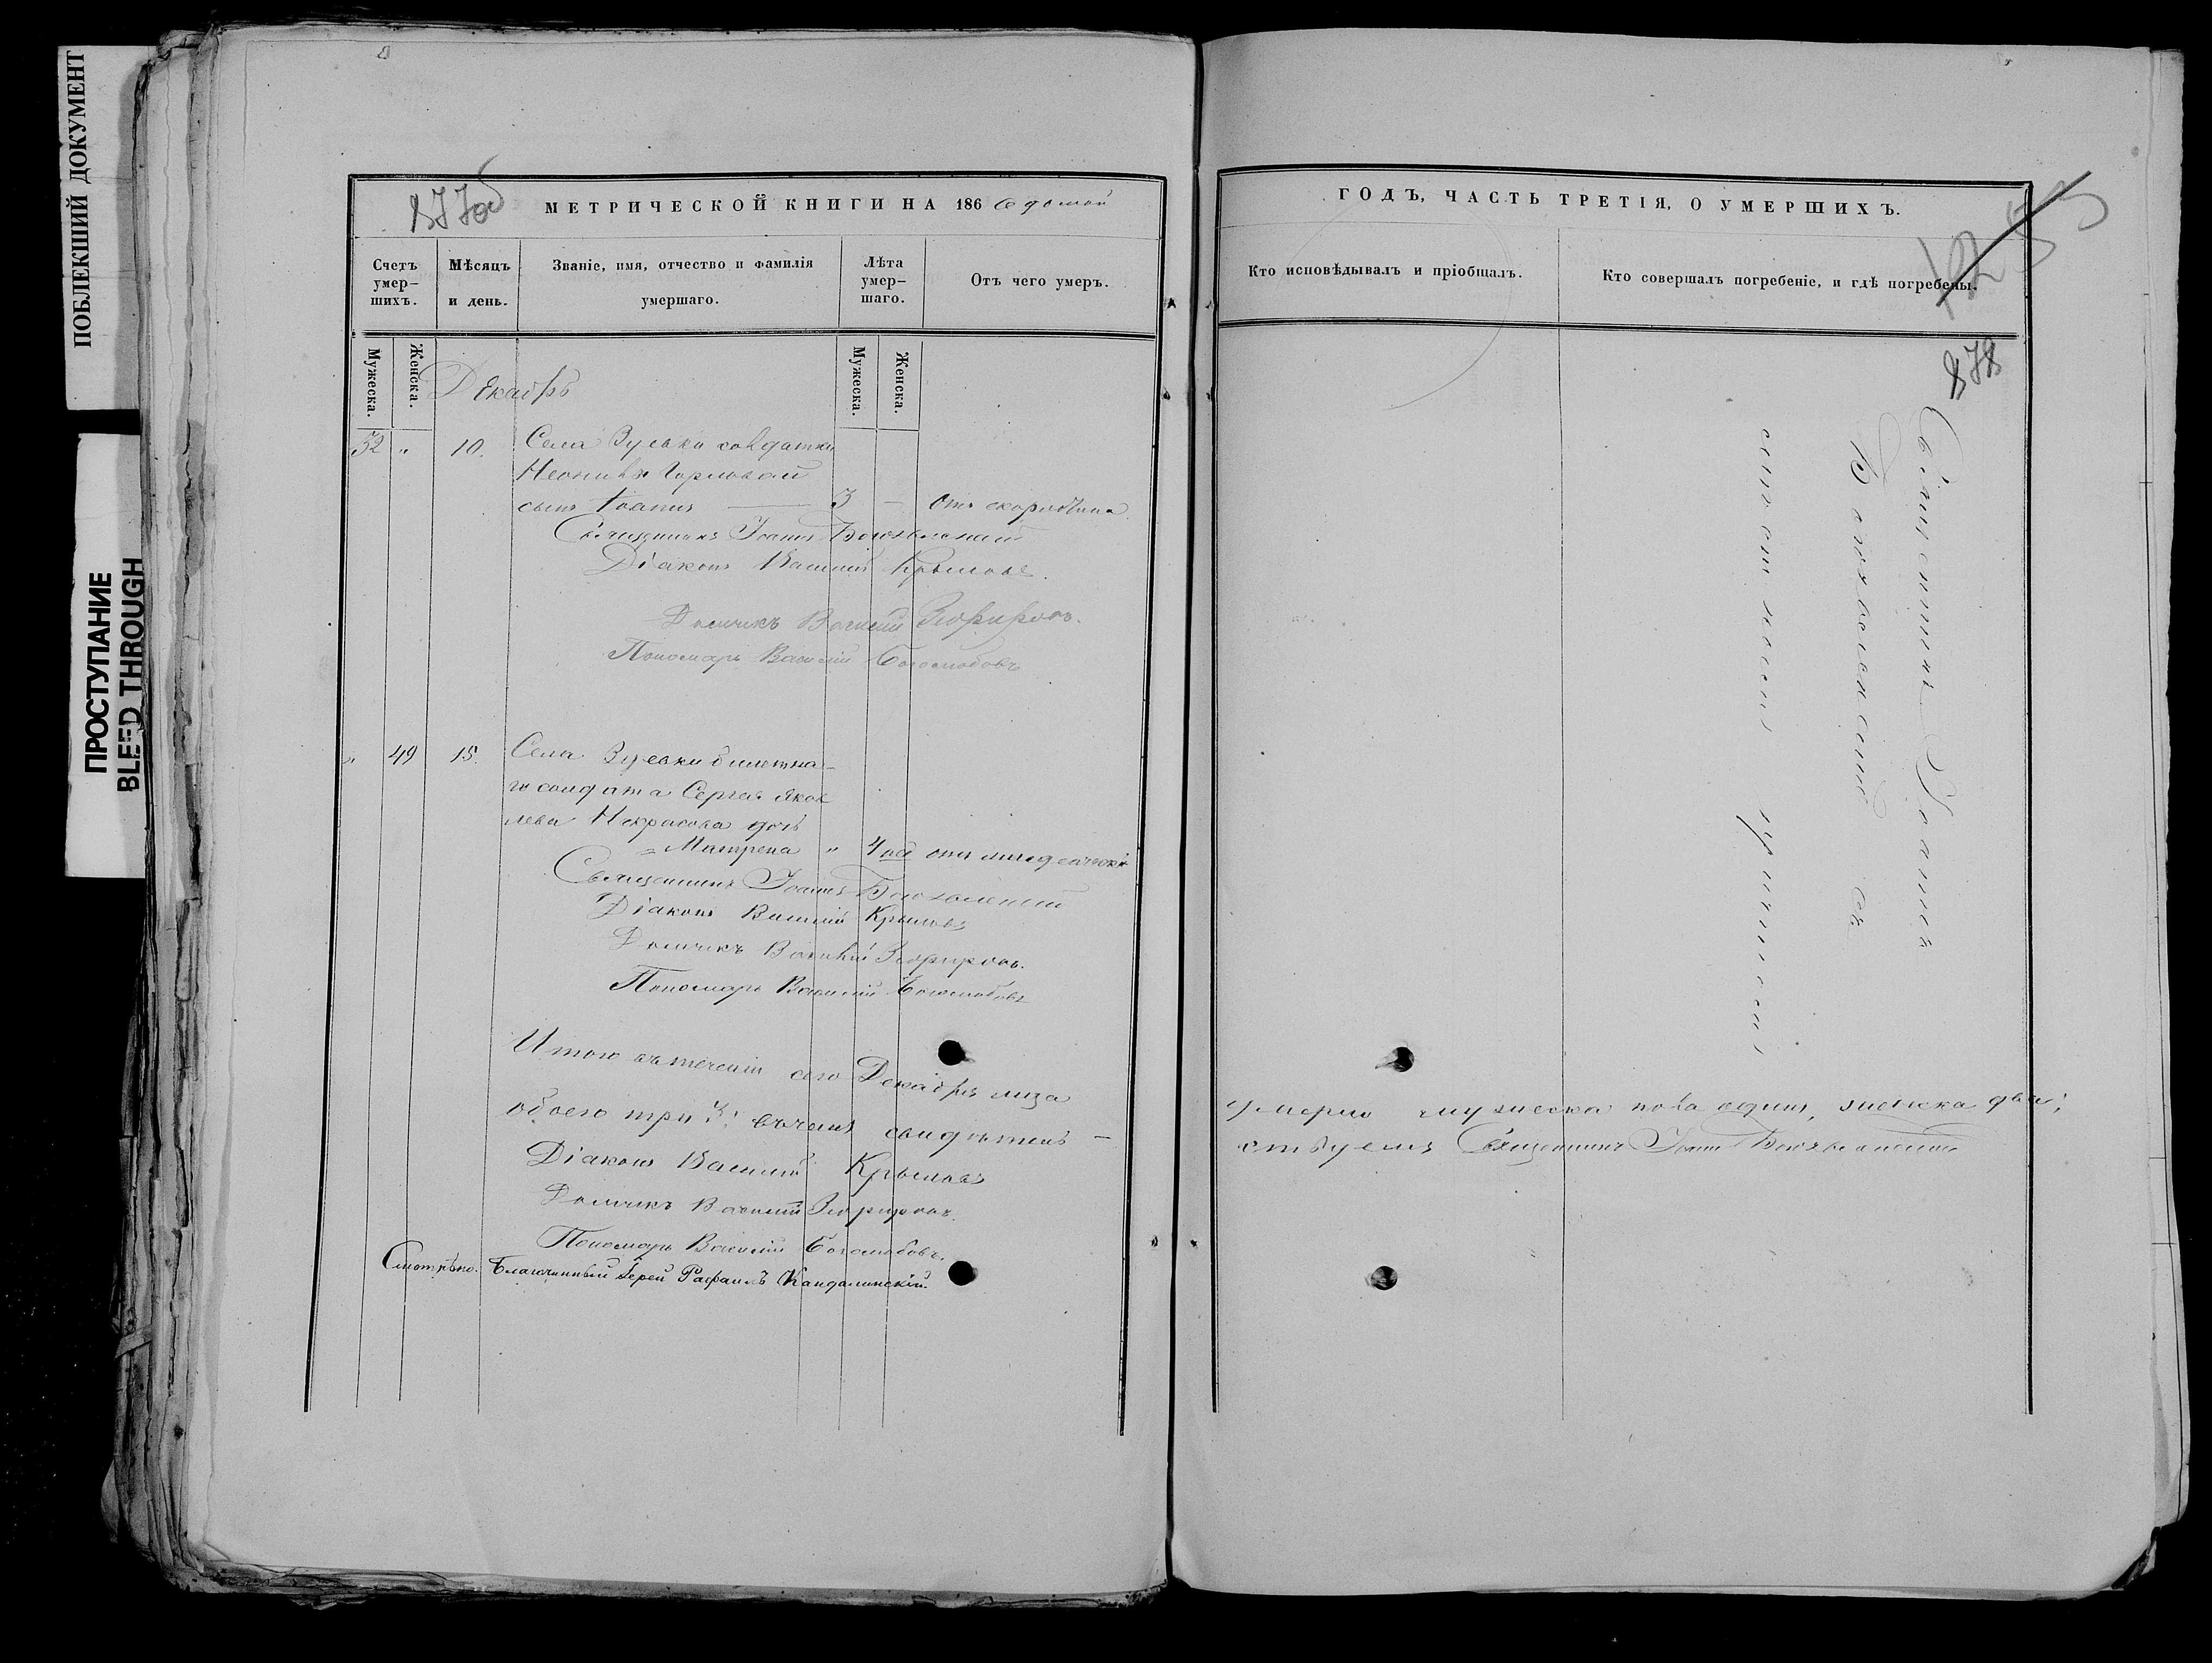 ПОБЛЕКШИЙ ДОКУМЕНТ
ПРОСТУПАНИЕ
BLEED THROUGH
877об
МЕТРИЧЕСКОЙ КНИГИ НА 186 седьмой
Счетъ умер-шихъ.
Мѣсяцъ и день.
Званіе, имя, отчество и фамилія умершаго.
Лѣта умер-шаго.
Отъ чего умеръ.
Мужеска.
Женска.
Мужеска.
Женска.
Декабрь
52 " 10. Села Зуевки солдатки
Неонилы Горловой
сынъ Іоаннъ — 3 — Отъ скорбѣна
Священникъ Іоаннъ Боголюбскій
Діаконъ Василій Крыловъ.
Дьячекъ Василій Зефировъ.
Пономарь Василій Боголюбовъ
" 49 15. Села Зуевки билетна-
го солдата Сергея Яков
лева Некрасова дочь
= Матрена " 4 нед отъ младенческ
Священникъ Іоаннъ
Діаконъ Василій Крыловъ
Дьячекъ Василій Зефировъ.
Пономарь Василій Боголюбовъ
Итого въ теченіи сего Декабря м-ца
обоего три 3: въ чемъ свидѣтель –
Діаконъ Василій Крыловъ
Дьячекъ Василій Зефировъ.
Пономарь Василій Боголюбовъ.
Смотрѣно. Благочинный Іерей Рафаилъ Кандалинскій.
ГОДЪ, ЧАСТЬ ТРЕТІЯ, О УМЕРШИХЪ.
Кто исповѣдывалъ и пріобщалъ.
Кто совершалъ погребеніе, и гдѣ погребены.
878
Священникъ Іоаннъ
съ
причтомъ
умерло мужеска пола одинъ, женска два;
ствуемъ Священникъ Іоаннъ